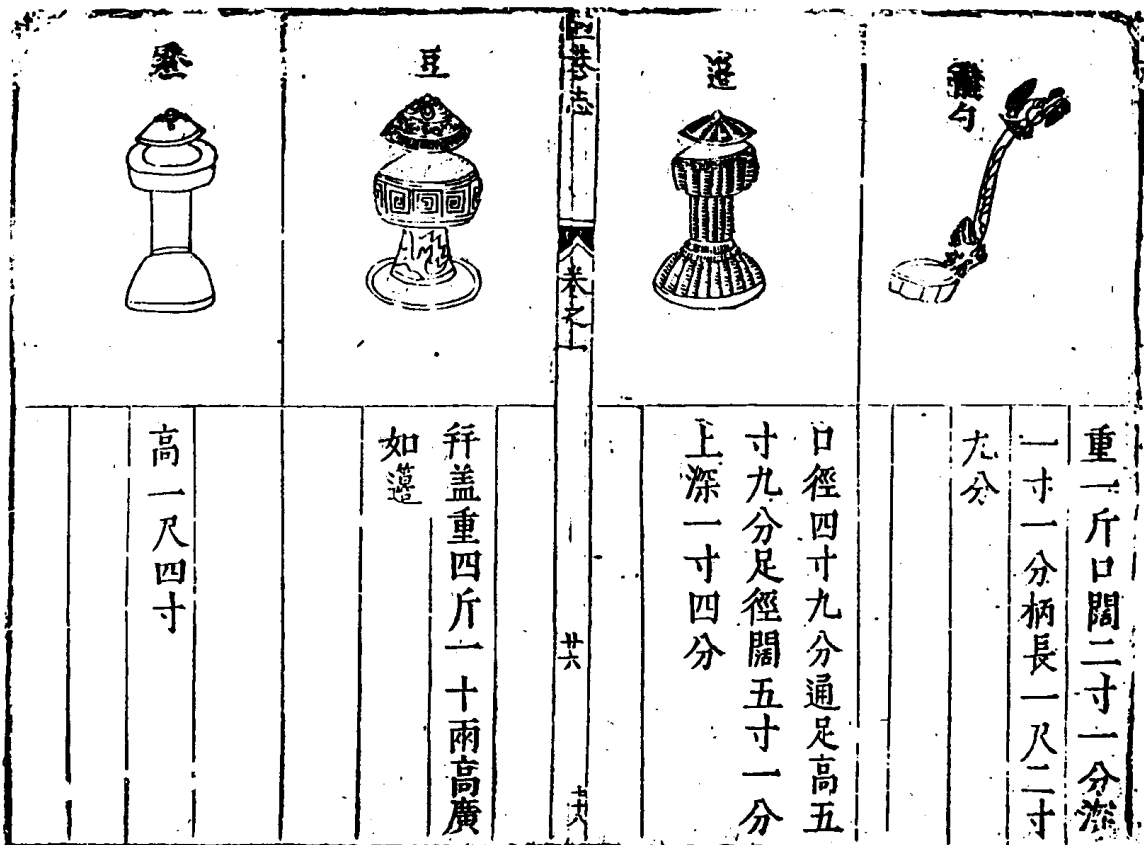 勺
重一斤口闊二寸一分深
一寸一分柄長一尺二寸
九分
籩
口徑四寸九分通足高五
寸九分足徑闊五寸一分
上深一寸四分
巷志
卷之一
廿六
豆
盖重四斤一十兩高廣
如籩
高一尺四寸